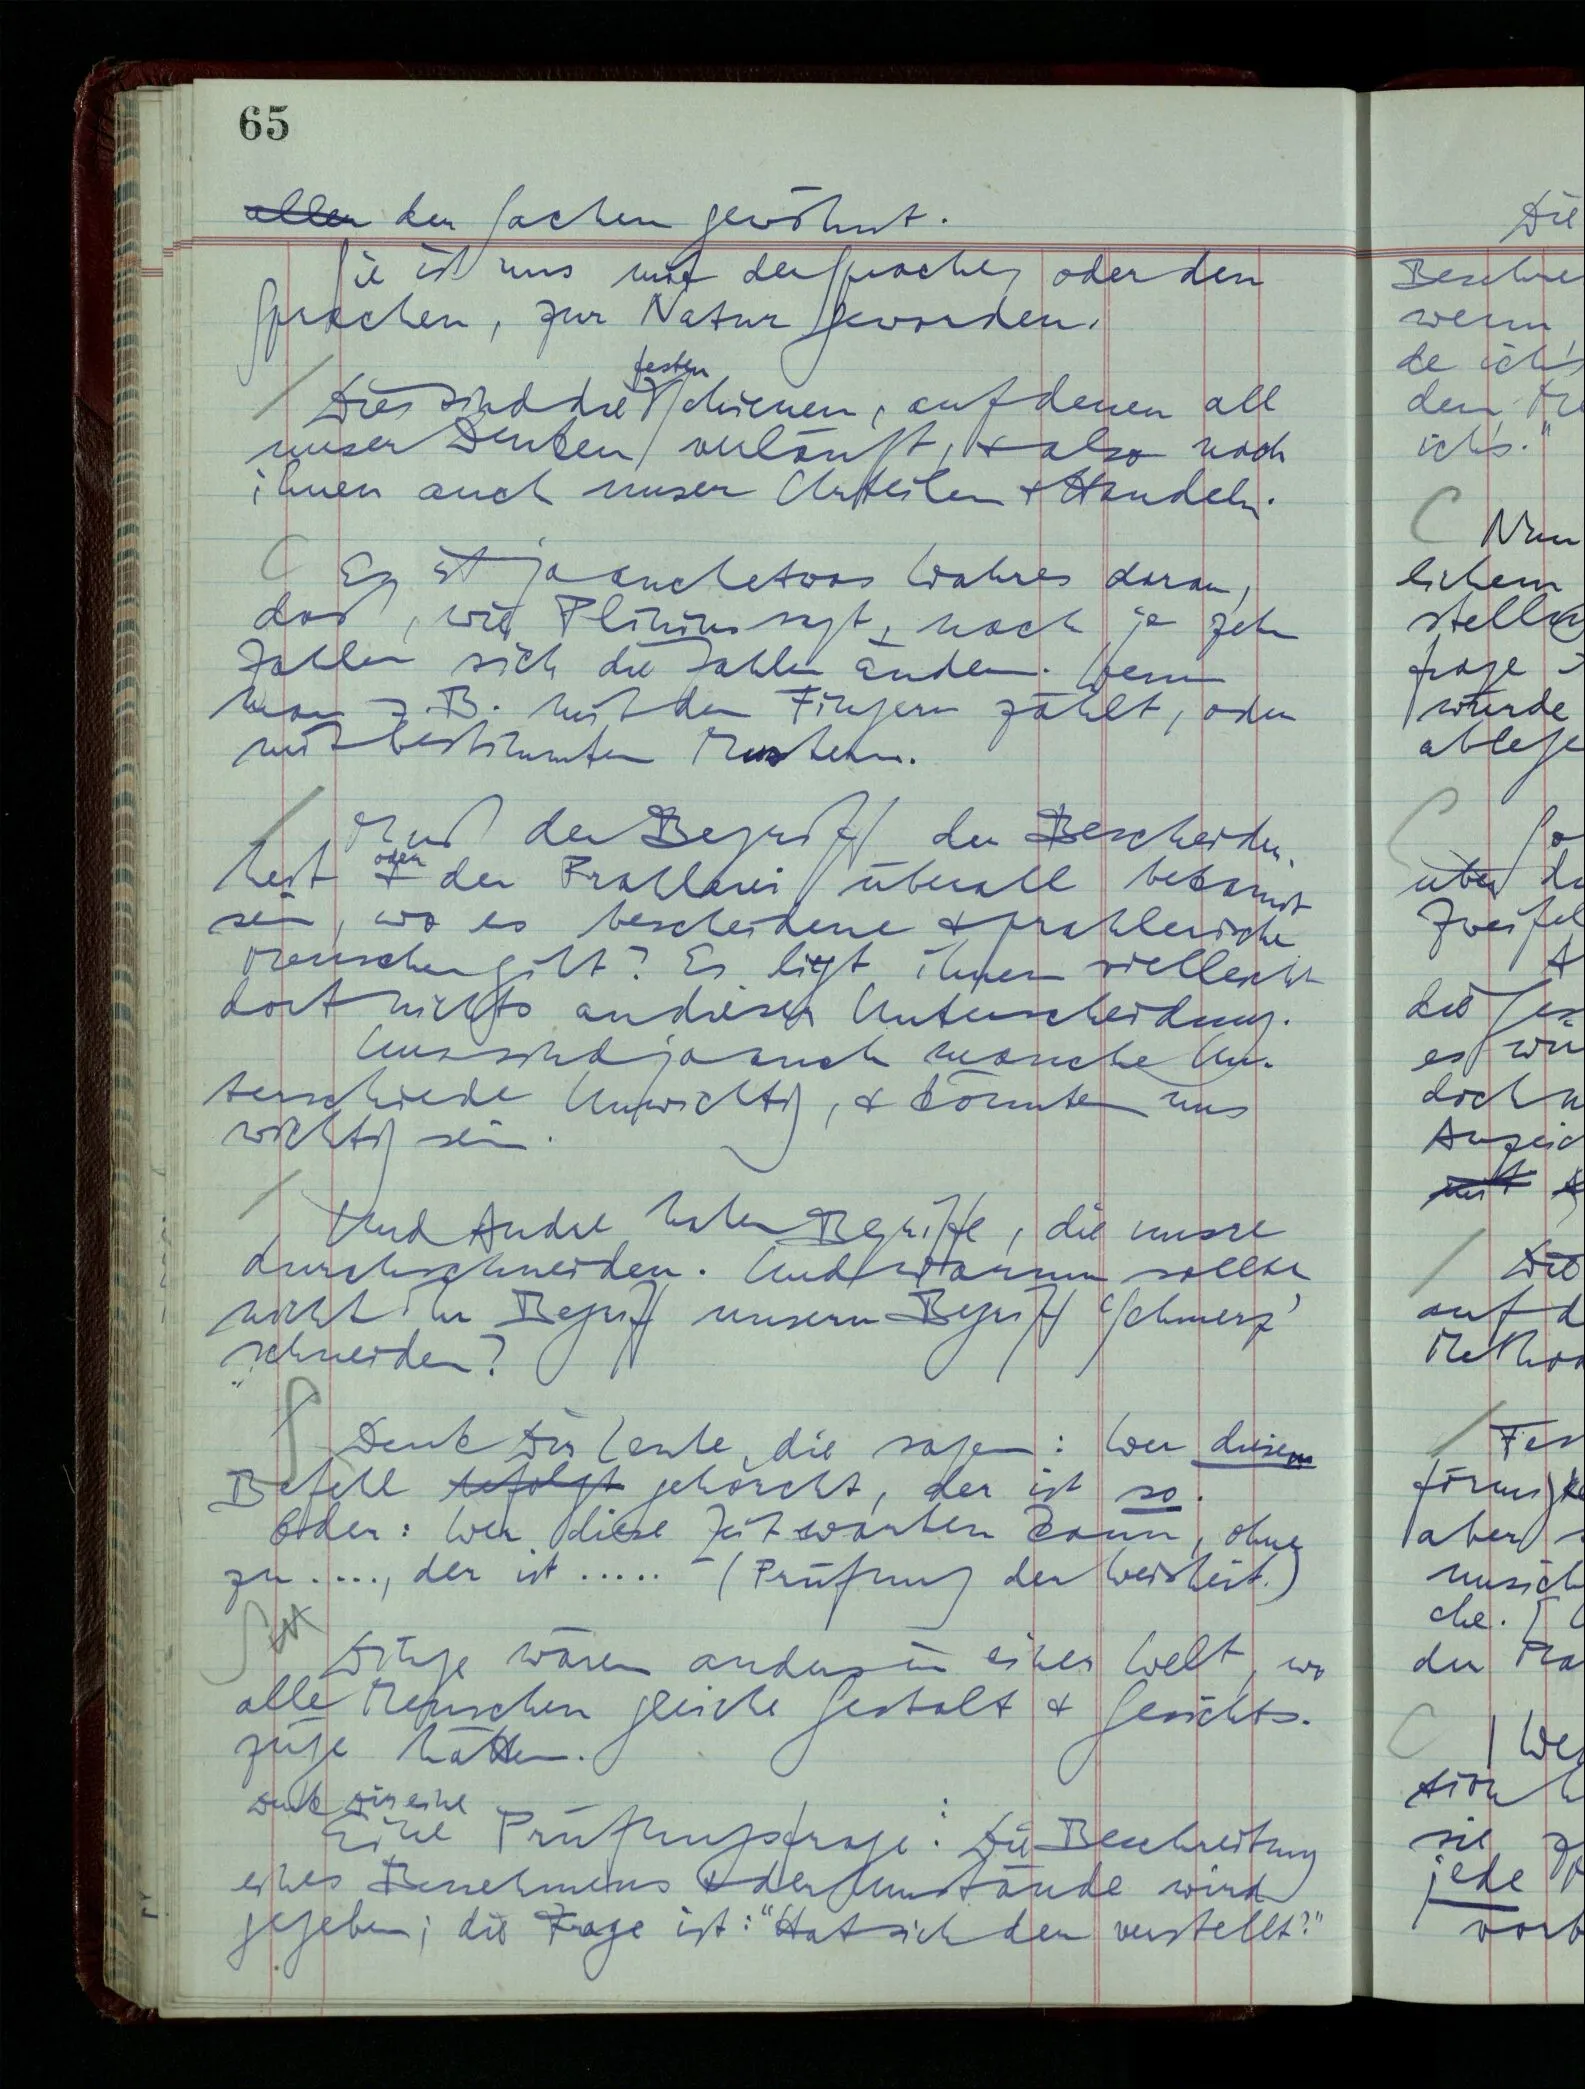 65
aller der Sachen gewöhnt.
Sie ist uns mit der Sprache, oder den
Sprachen, zur Natur geworden.
festen
Dies sind die Schienen, auf denen all
unser Denken verläuft, & also nach
ihnen auch unser Urteilen & Handeln.
Es ist ja auch etwas Wahres daran,
daß, wie Plinius sagt, nach je zehn
Zahlen sich die Zahlen ändern. Wenn
man z.B. mit den Fingern zählt, oder
mit bestimmten Mustern.
Muß der Begriff der Bescheiden-
oder
heit & der Prahlerei überall bekannt
sein, wo es bescheidene & prahlerische
Menschen gibt? Es liegt ihnen vielleicht
dort nichts an dieser Unterscheidung.
Uns sind ja auch manche Un-
terschiede unwichtig, & könnten uns
wichtig sein.
Und Andre haben Begriffe, die unsre
durchschneiden. Und warum sollte
nicht ihr Begriff unsern Begriff 'Schmerz'
schneiden?
Denk Dir Leute, die sagen: Wer diesem
Befehl befolgt gehorcht, der ist so.
Oder: Wer diese Zeit warten kann, ohne
zu ...., der ist ..... – (Prüfung der Weisheit.)
Dinge wären anders in einer Welt, wo
alle Menschen gleiche Gestalt & Gesichts-
züge hätten.
Denk dir eine
Eine Prüfungsfrage: Die Beschreibung
eines Benehmens & der Umstände wird
gegeben; die Frage ist: "Hat sich der verstellt?"
Die
wenn
de ich's
ich's."
C Nun
lichem
frage
würde
So
über
A
es
doch
mit
Die
auf d
aber
che.
der
jede